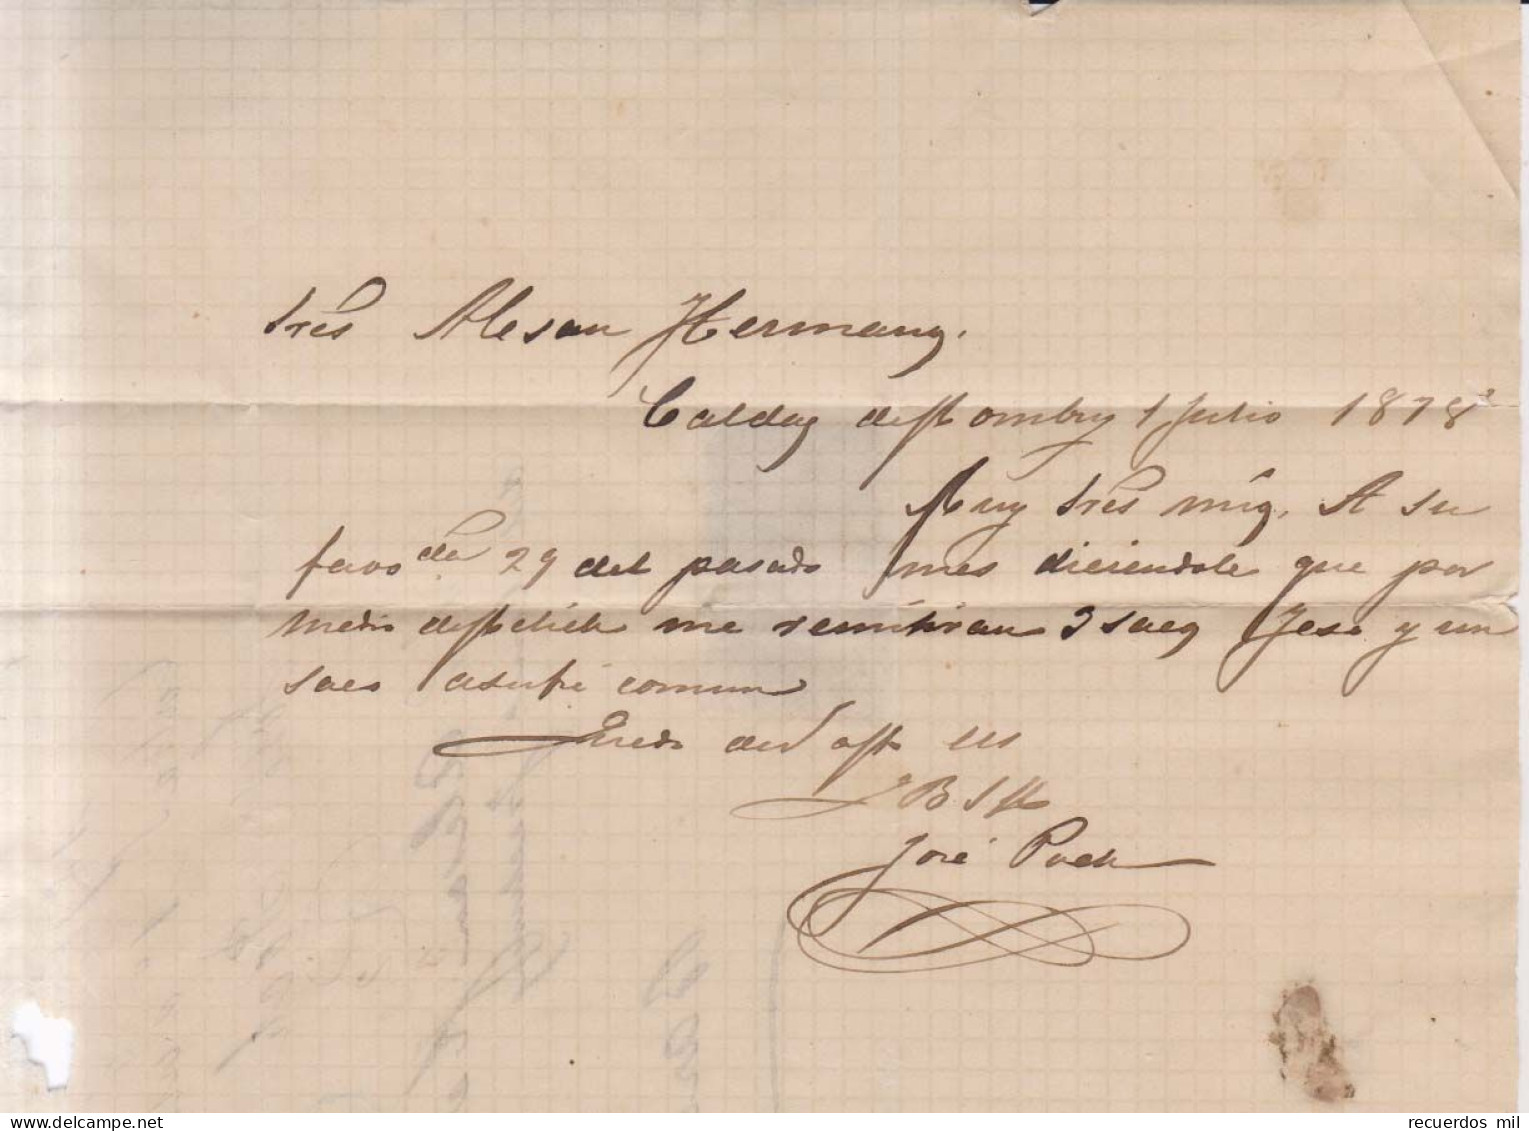 Sres Alesan Hermanos.
Caldas de Mombuy 1 Julio 1878
Muy Sres mios. A su
favoda 29 del pasado mes diciendole que por
medio del me remitiran 3 sacos Yeso y un
saco comun
Quedo de V afto
JBSM
José Puch
recuerdos mil